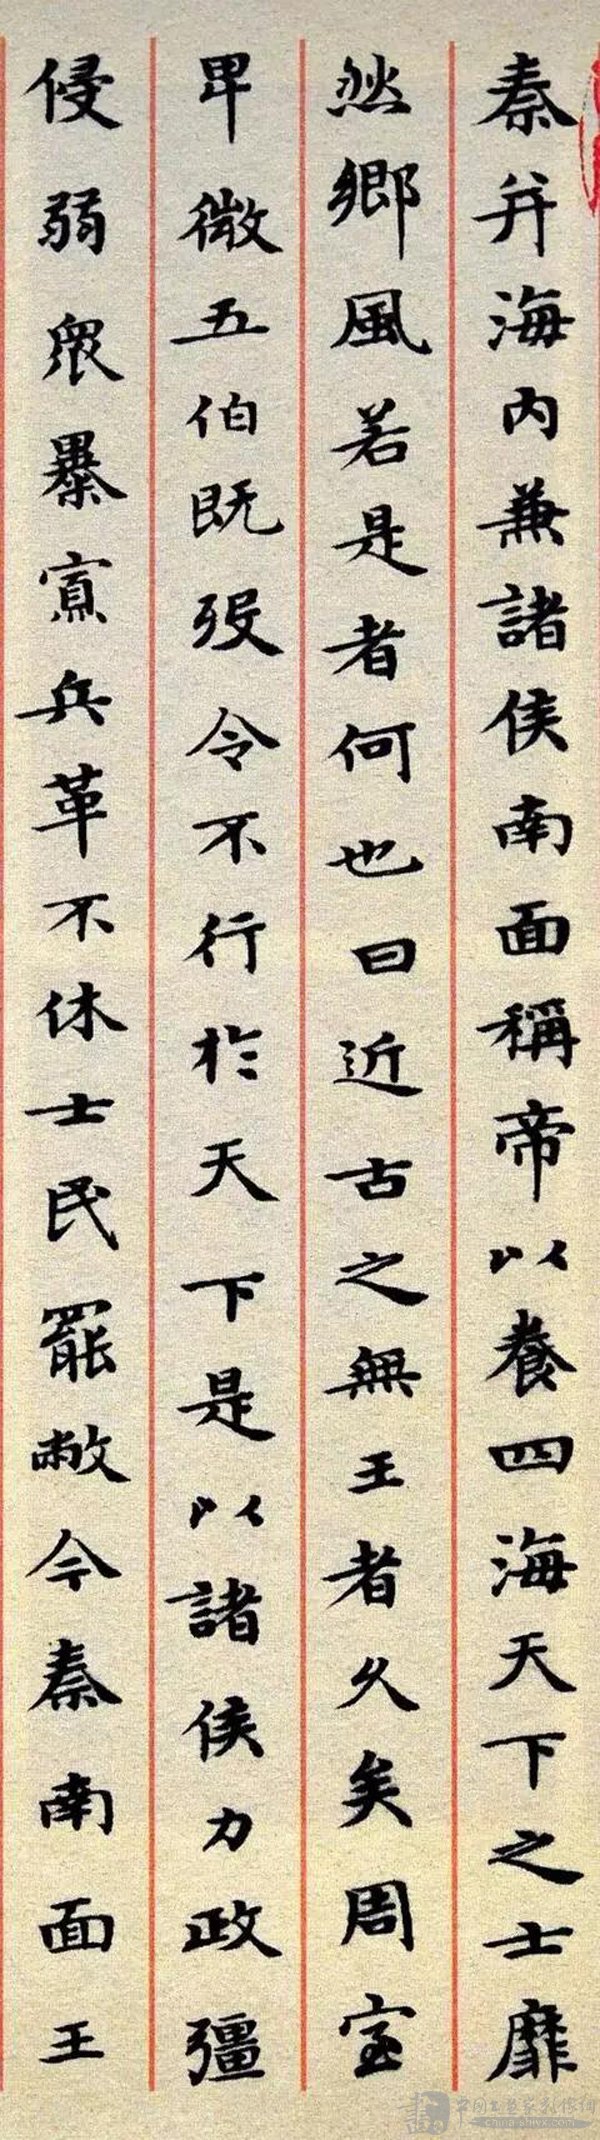 秦并海内兼諸侯南面稱帝以養四海天下之士靡
然鄉風若是者何也曰近古之無王者久矣周室
卑微五伯既歿令不行於天下是以諸侯力政彊
侵弱眾暴寡兵革不休士民罷敝今秦南面王
china-shivx.com